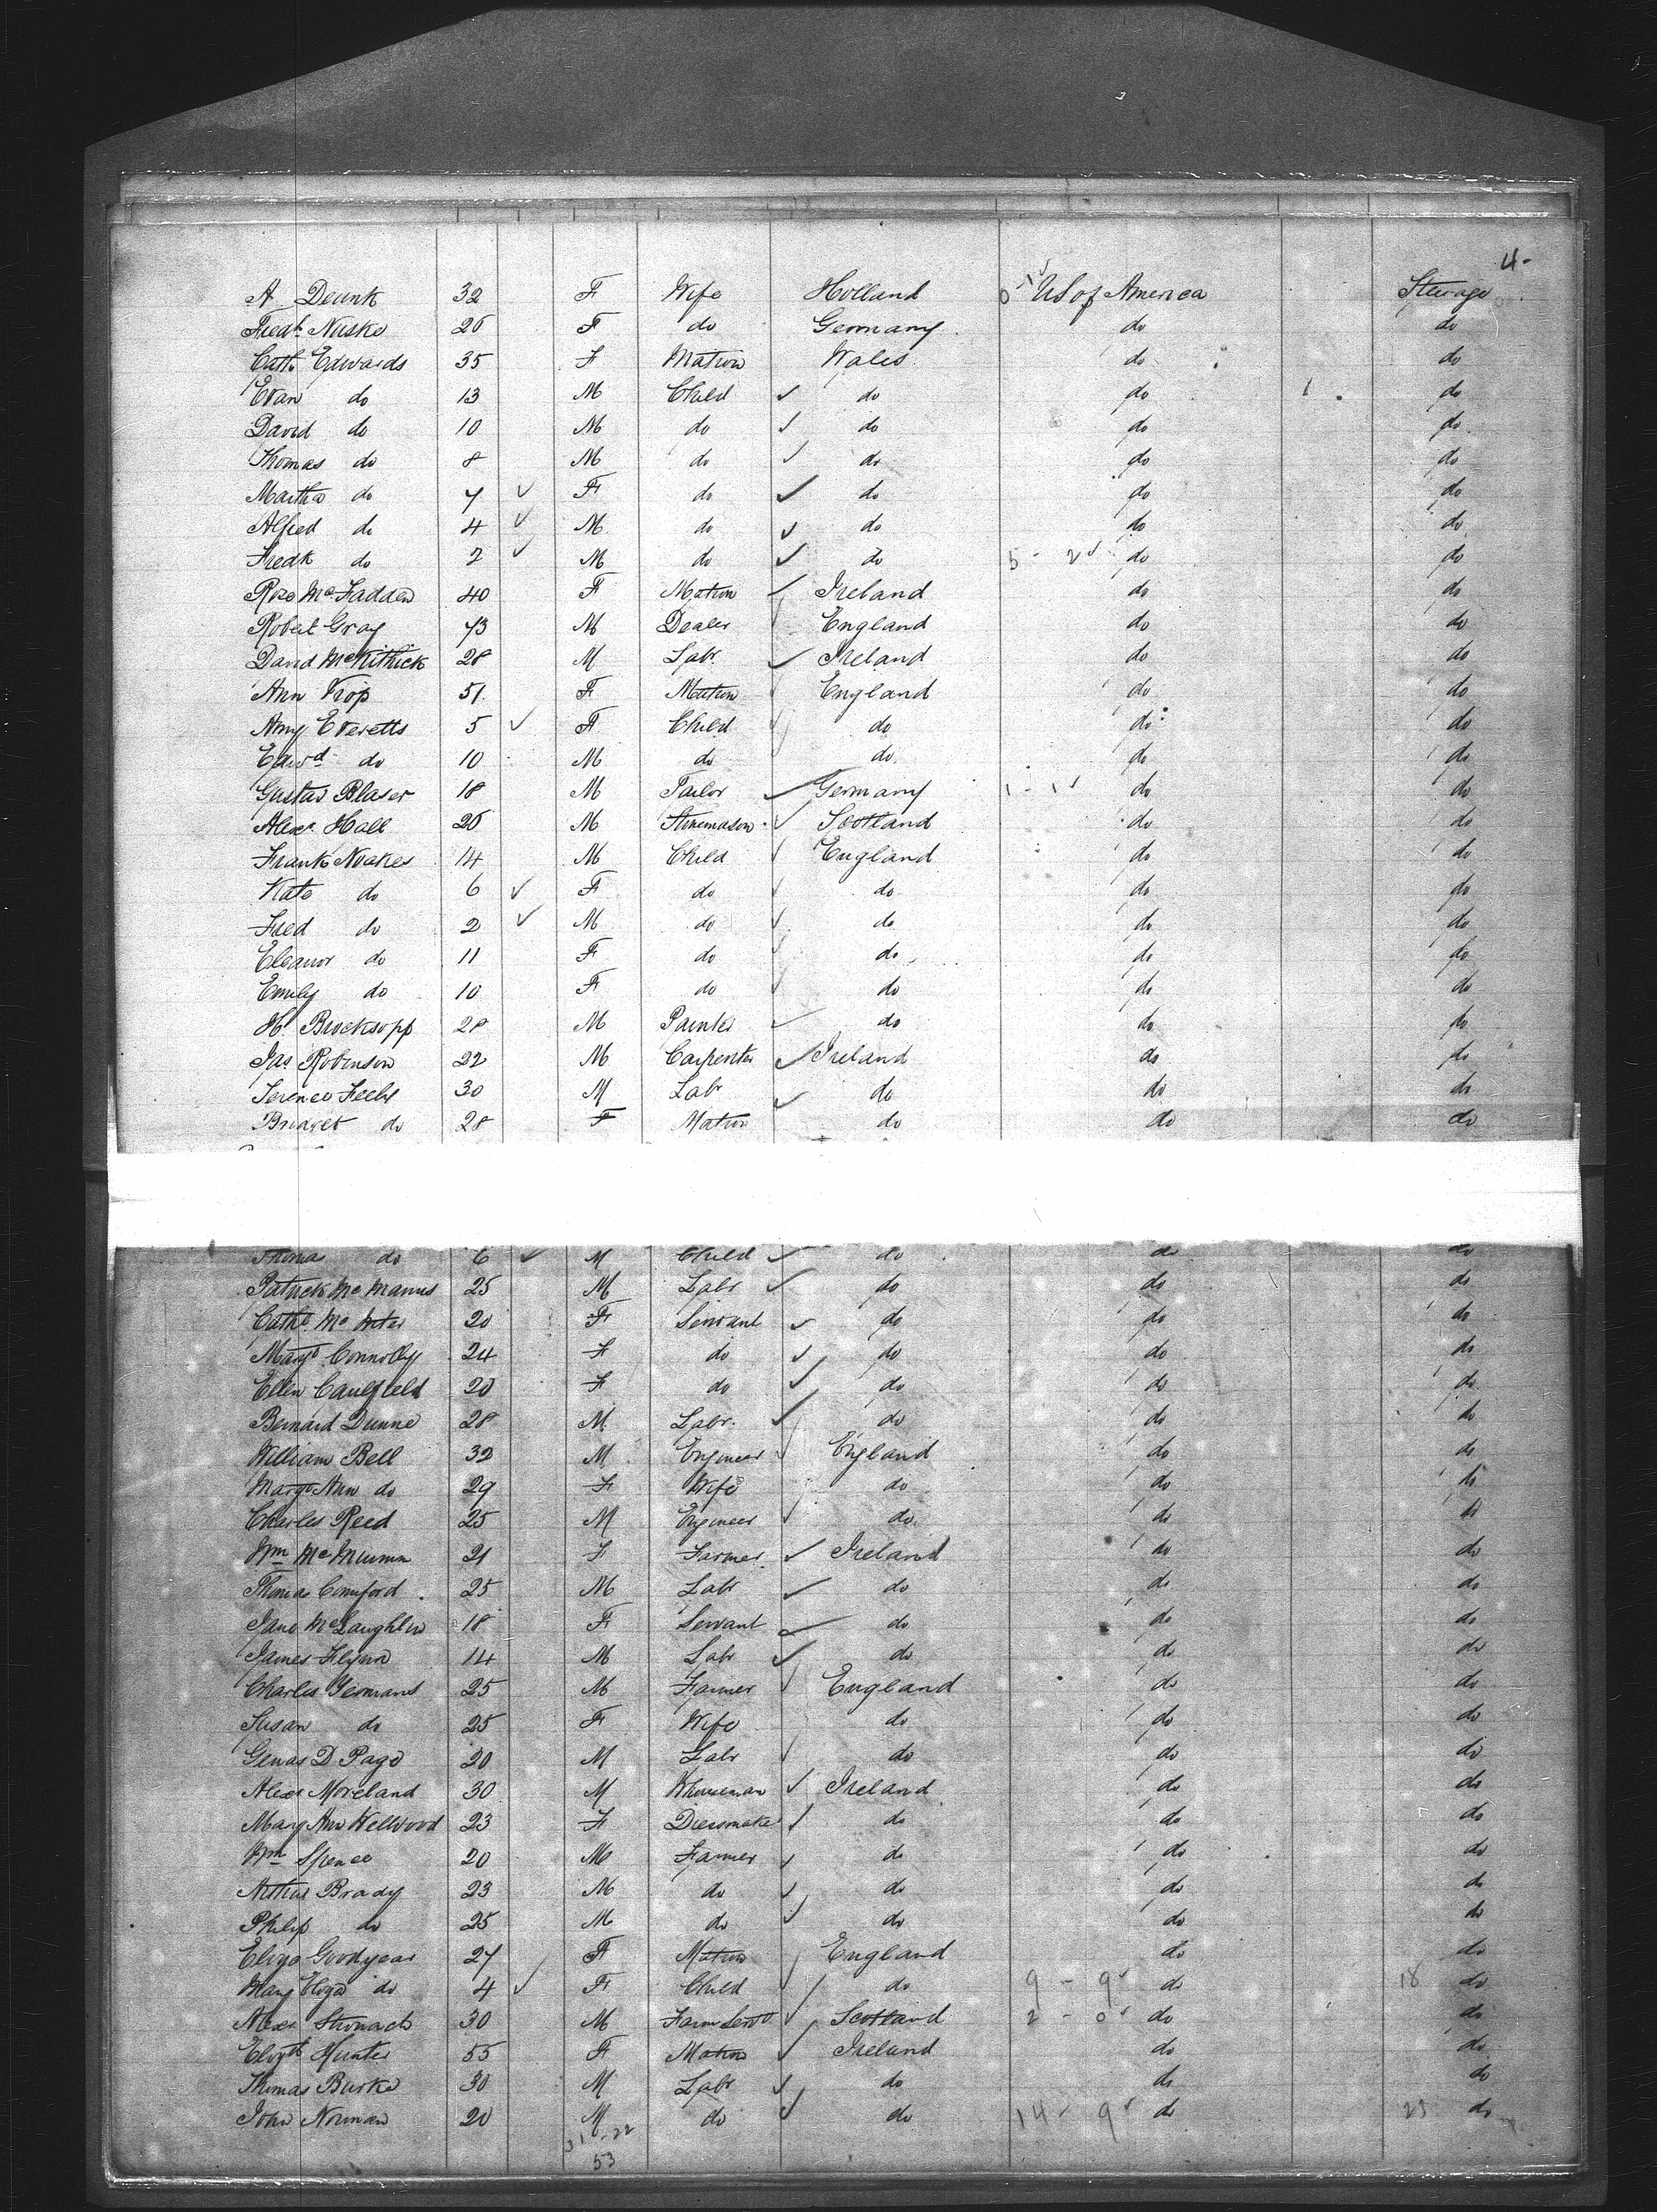 4-
A Deunk 32 F Wife Holland 0 1 US of America Steerage
Fredk Nuske 26 F do Germany do do
Cath Edwards 35 F Matron Wales do do
Evan do 13 M Child ✓ do do 1 do
David do 10 M do ✓ do do do
Thomas do 8 M do ✓ do do do
Martha do 7 ✓ F do ✓ do do do
Alfred do 4 ✓ M do ✓ do do do
Fredk do 2 ✓ M do ✓ do 5 - 2 ✓ do do
Rose McFadden 40 F Matron ✓ Ireland do do
Robert Gray 43 M Dealer England do do
David McKittrick 28 M Labr. ✓ Ireland do do
Ann Frop 51 F Matron England do do
Amy Everetts 5 ✓ F Child do do do
Edwd do 10 M do do do do
Gustav Blaser 18 M Tailor ✓ Germany 1 - 1 ✓ do do
Alexr Hall 26 M Stonemason ✓ Scotland do do
Frank Noakes 14 M Child England do do
Kate do 6 ✓ F do do do do
Fred do 2 ✓ M do do do do
Eleanor do 11 F do do do do
Emily do 10 F do do do do
H. Brocksopp 28 M Painter ✓ do do do
Jas Robinson 22 M Carpenter ✓ Ireland do do
Terence Feehl 30 M Labr ✓ do do do
Bridget do 28 F Matron do do do
Thomas do 6 ✓ M Child ✓ do do do
Patrick McManus 25 M Labr ✓ do do do
Cathe Mc 20 F Servant ✓ do do do
Margt Connolly 24 F do ✓ do do do
Ellen Caulfield 20 F do ✓ do do do
Bernard Dunne 28 M Labr. ✓ do do do
William Bell 32 M Engineer England do do
Margt Ann do 29 F Wife do do do
Charles Reed 25 M Engineer do do do
Wm McMumn 21 F Farmer ✓ Ireland do do
Thomas Comford 25 M Labr ✓ do do do
Jane McLaughlin 18 F Servant ✓ do do do
James Flynn 14 M Labr ✓ do do do
Charles Yeomans 25 M Farmer England do do
Susan do 25 F Wife do do do
Genas D Page 20 M Labr do do do
Alexr Moreland 30 M Whouseman ✓ Ireland do do
Mary Ann Wellwood 23 F Dressmaker ✓ do do do
Wm Spence 20 M Farmer ✓ do do do
Arthur Brady 23 M do ✓ do do do
Philip do 25 M do ✓ do do do
Eliza Goodyear 27 F Matron England do do
Mary Eliza do 4 ✓ F Child do 9 - 9 ✓ do 18 do
Alexr Stronach 30 M Farm Servt ✓ Scotland 2 - 0 ✓ do do
Elizth Hunter 55 F Matron ✓ Ireland do do
Thomas Burke 30 M Labr ✓ do do do
John Norman 20 M do ✓ do 14 - 9 ✓ do 23 do
31 - 22
53